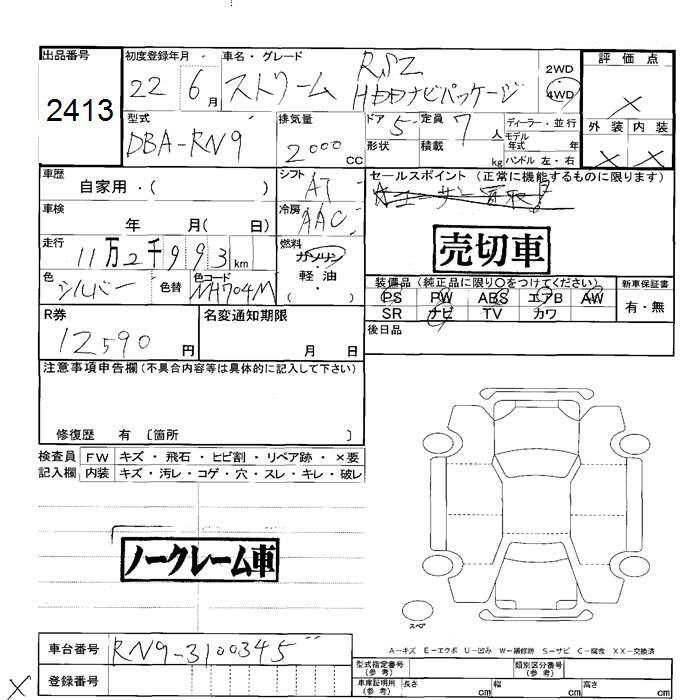 出品番号 初度登録年月 車名・グレード 評価点
2413 22 6月 ストリーム RSZ HDDナビパッケージ 2WD 4WD ×
型式 排気量 ドア 定員 ディーラー・並行 外装 内装
DBA-RN9 2000cc 5 7人 モデル年式 年 × ×
形状 積載 kg ハンドル 左・右
車歴 シフト セールスポイント (正常に機能するものに限ります)
自家用・( ) AT
車検 冷房
年 月( 日) AAC 売切車
走行 燃料
11万2千993km ガソリン・軽油・( )
色 色替 色コード 装備品 (純正品に限り○をつけてください) 新車保証書
シルバー NH704M PS PW ABS エアB AW 有・無
SR ナビ TV カワ
R券 名変通知期限 後日品
12590円 月 日
注意事項申告欄 (不具合内容等は具体的に記入して下さい)
修復歴 有 〔箇所 〕
検査員 FW キズ・飛石・ヒビ割・リペア跡・×要
記入欄 内装 キズ・汚レ・コゲ・穴・スレ・キレ・破レ
ノークレーム車
スペア
A-キズ E-エクボ U-凹み W-補修跡 S-サビ C-腐食 XX-交換済
車台番号 RN9-3100345 型式指定番号(参考) 類別区分番号(参考)
× 登録番号 車庫証明用(参考) 長さ cm 幅 cm 高さ cm